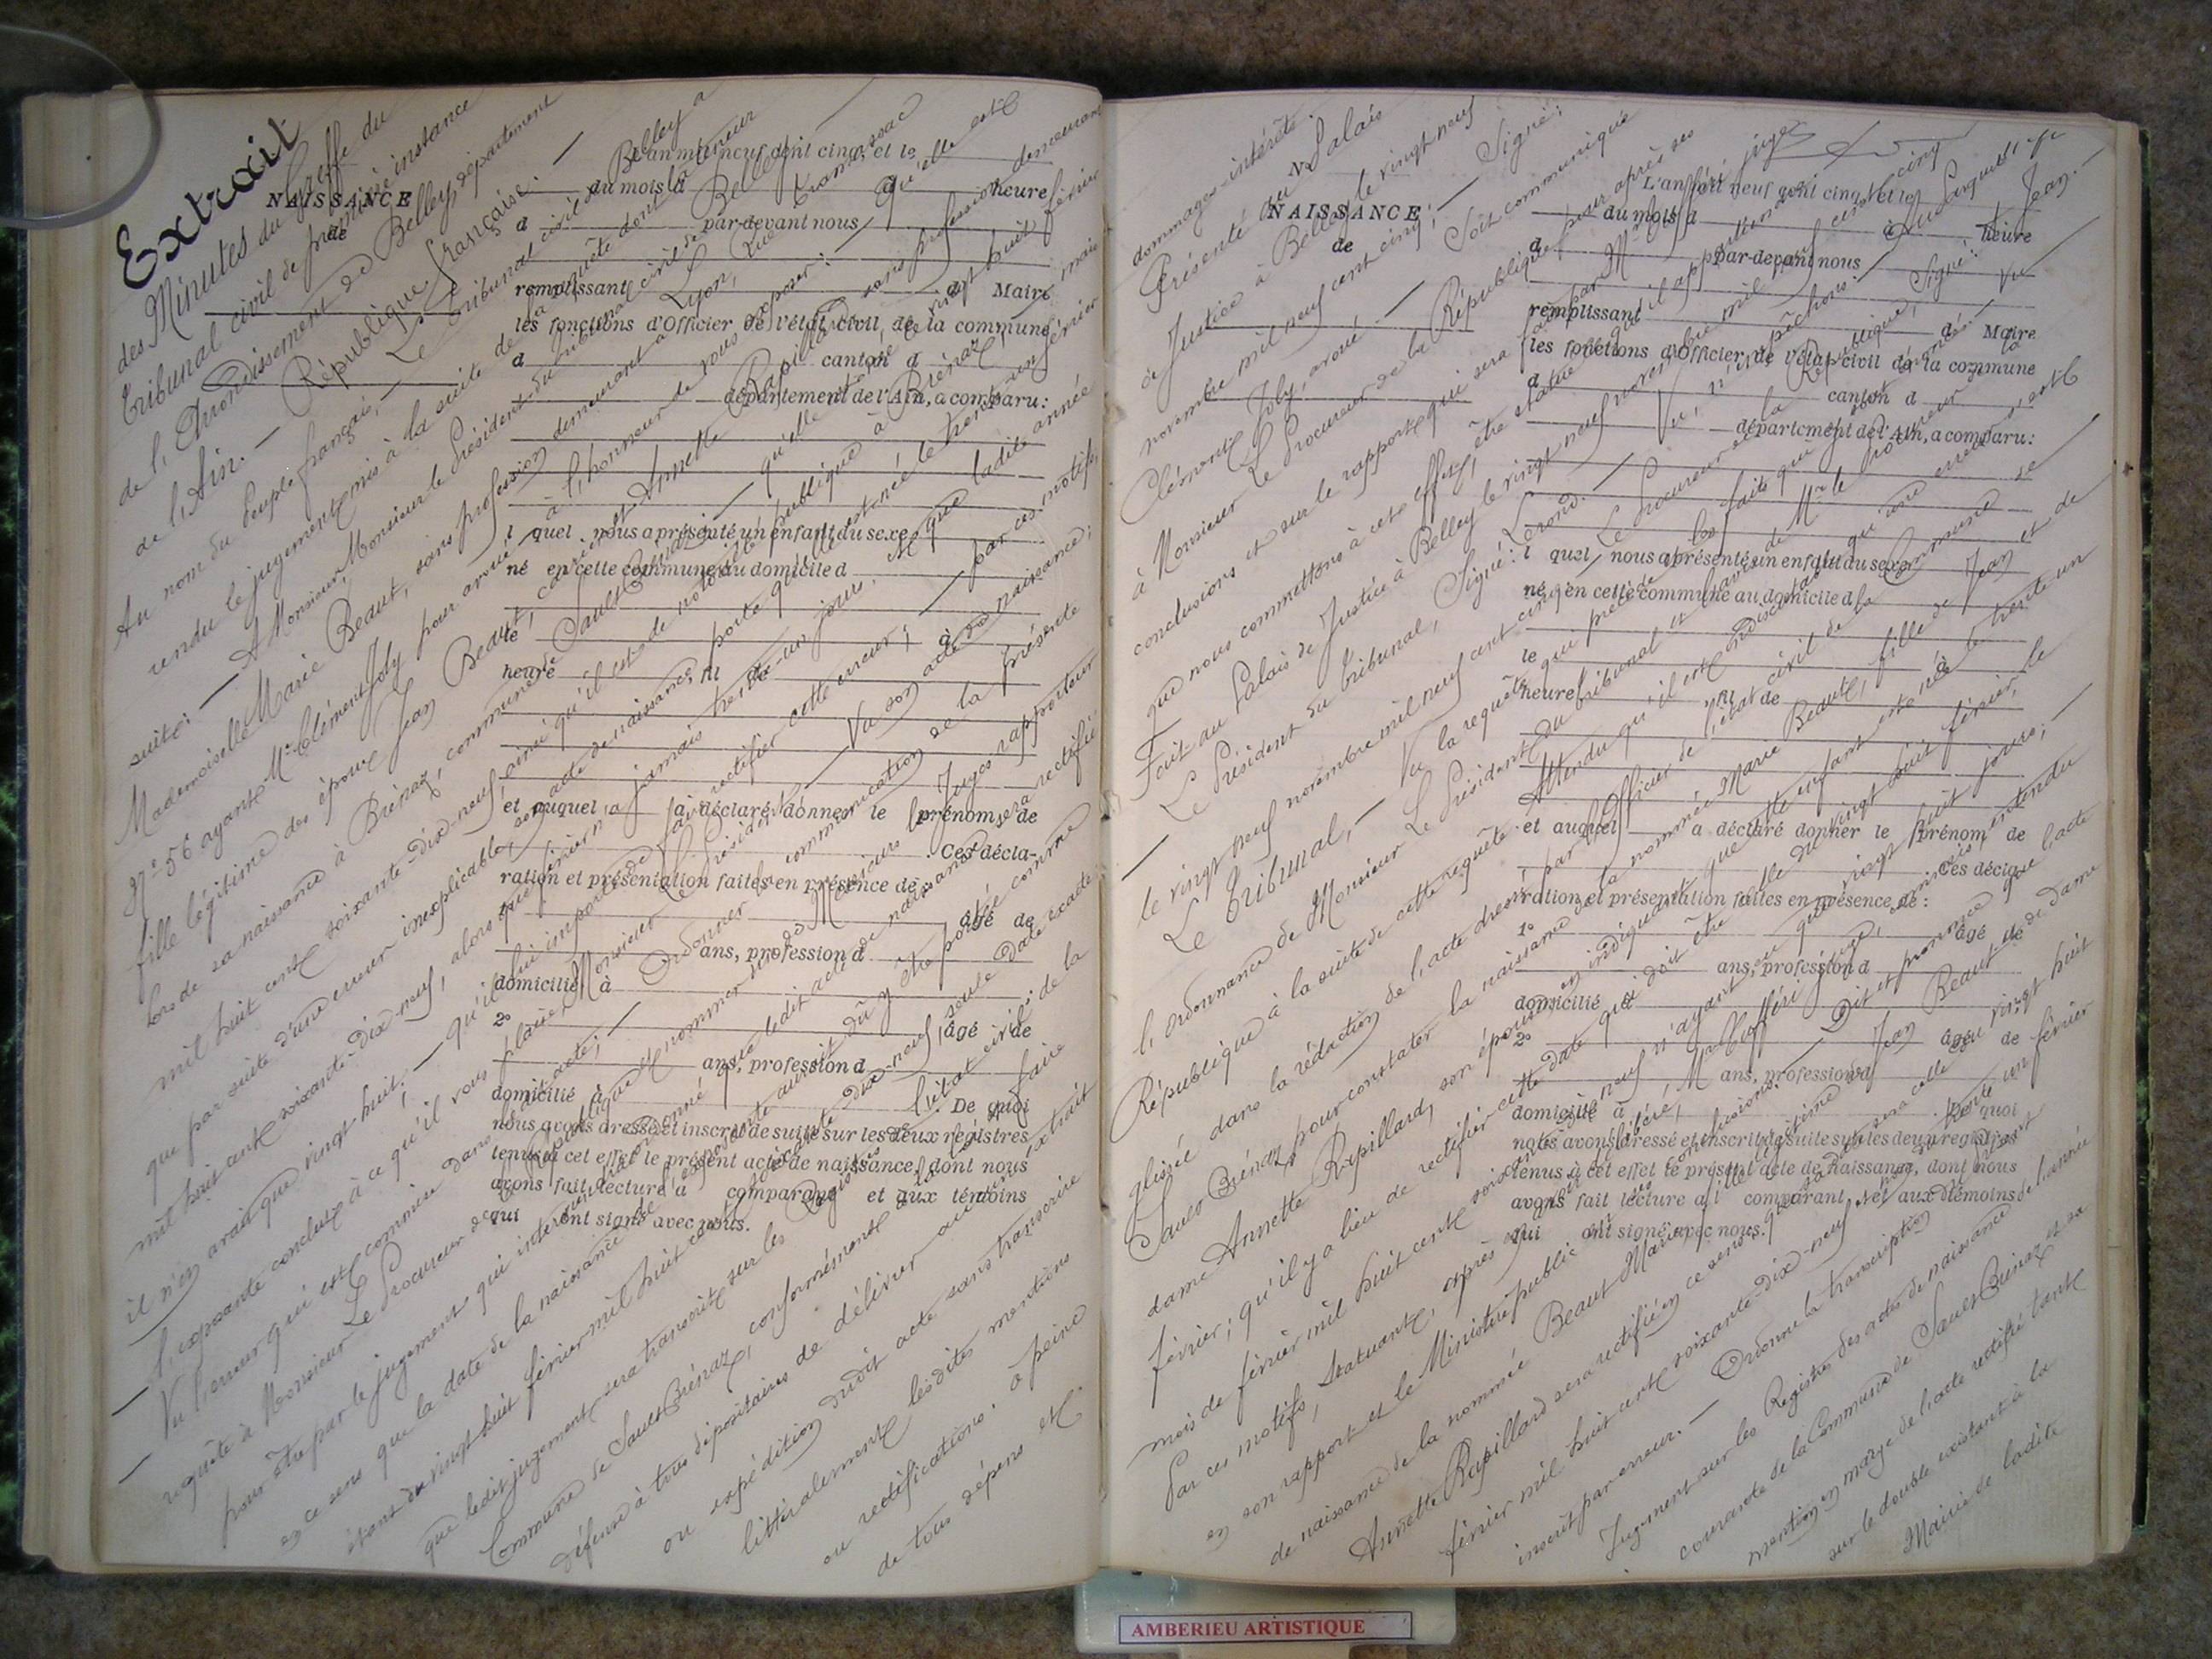 Extrait
des Minutes du Greffe du
Tribunal civil de première instance
de l'Arrondissement de Belley, département
de l'Ain. — République française. —
Au nom du Peuple français, — Le Tribunal civil de Belley a
rendu le jugement mis à la suite de la requête dont la teneur
suit: — A Monsieur, Monsieur le Président du tribunal civil de Belley
Mademoiselle Marie Beaut, sans profession demeurant à Lyon, rue
N° 56 ayant Me Clément Joly pour avoué à l'honneur de vous exposer: — qu'elle est
fille légitime des époux Jean Beaut, et Annette Rapillard sans profession demeurant
lors de sa naissance à Brénaz, commune de Sault
mil huit cent soixante-dix-neuf, ainsi qu'il est de notoriété publique à Brénaz,
que par suite d'une erreur inexplicable, son acte de naissance, porte qu'elle est née le trente un février
mil huit cent soixante-dix-neuf, alors que février n'a jamais trente-un jours, et que ladite année
il n'en avait que vingt huit; — qu'il lui importe de faire rectifier cette erreur; — par ces motifs,
l'exposante conclut à ce qu'il vous plaise, Monsieur le Président — Vu son acte de naissance;
— Vu l'erreur qui est commise dans ledit acte; — Ordonner la communication de la présente
requête à Monsieur Le Procureur de la République et nommer un de Messieurs les Juges rapporteur
pour être par le jugement qui interviendra ordonné que ledit acte de naissance sera rectifié
en ce sens que la date de la naissance de l'exposante aurait dû y être portée comme
étant du vingt huit février mil huit cent soixante dix-neuf, seule date exacte
que ledit jugement sera transcrit sur les Registres de l'état civil de la
Commune de Sault Brénaz, conformément à la loi; faire
défense à tous dépositaires de délivrer aucun extrait
ou expédition dudit acte sans transcrire
littéralement lesdites mentions
ou rectifications. à peine
de tous dépens et
NAISSANCE
de
L'an mil neuf cent cinq, et le
du mois d à heure
d par-devant nous
remplissant d Maire
les fonctions d'Officier de l'état civil, de la commune
d canton d
département de l'Ain, a comparu:
l quel nous a présenté un enfant du sexe
né en cette commune au domicile d
le à
heure , fil de
et auquel a déclaré donner le prénom de
. Ces décla-
ration et présentation faites en présence de:
1° âgé de
ans, profession d
domicilié à
2° âgé de
ans, profession d
domicilié à . De quoi
nous avons dressé et inscrit de suite sur les deux registres
tenus à cet effet le présent acte de naissance, dont nous
avons fait lecture a comparant et aux témoins
qui ont signé avec nous.
dommages-intérêts.
Présenté au Palais
de Justice à Belley le vingt neuf
novembre mil neuf cent cinq; — Signé:
Clément Joly, avoué. — Soit communiqué
à Monsieur Le Procureur de la République pour après ses
conclusions et sur le rapport qui sera fait par Mr juge
que nous commettons à cet effet, être statué ce qu'il appartiendra
Fait au Palais de Justice à Belley le vingt neuf novembre mil neuf cent cinq
Le Président du tribunal, Signé: Lerond. — Vu, n'empêchons: — Au Parquet
le vingt neuf novembre mil neuf cent cinq. Le Procureur de la République, Signé: Jean. —
Le Tribunal, — Vu la requête qui précède, les faits qui y sont énoncés — Vu
l'ordonnance de Monsieur Le Président du tribunal et l'avis de Mr le Procureur de la
République à la suite de cette requête — Attendu qu'il est indiscutable qu'une erreur s'est
glissée dans la rédaction de l'acte dressé par l'Officier de l'état civil de la Commune de
Sault Brénaz pour constater la naissance de la nommée Marie Beaut, fille de Jean et de
dame Annette Rapillard, son épouse en indiquant que cette enfant est née le trente un
février; qu'il y a lieu de rectifier cette date qui doit être celle du vingt huit février, le
mois de février mil huit cent soixante dix neuf n'ayant eu que vingt huit jours; —
Par ces motifs, Statuant, après en avoir délibéré, Mr juge, commis, entendu
en son rapport et le Ministère public en ses conclusions. — Dit et prononce que l'acte
de naissance de la nommée Beaut Marie fille légitime de Jean Beaut et de dame
Annette Rapillard sera rectifié en ce sens que la date sera celle du vingt huit
février mil huit cent soixante-dix-neuf et non du trente un février
inscrit par erreur. — Ordonne la transcription du présent
Jugement sur les Registres des actes de naissance de l'année
courante de la Commune de Sault Brénaz et sa
mention en marge de l'acte rectifié tant
sur le double existant à la
Mairie de ladite
N°
NAISSANCE
de
L'an mil neuf cent cinq, et le
du mois d à heure
d par-devant nous
remplissant d Maire
les fonctions d'Officier de l'état civil de la commune
d canton d
département de l'Ain, a comparu:
l quel nous a présenté un enfant du sexe
né en cette commune au domicile d
le à
heure , fil de
et auquel a déclaré donner le prénom de
. Ces décla-
ration et présentation faites en présence de:
1° âgé de
ans, profession d
domicilié à
2° âgé de
ans, profession d
domicilié à . De quoi
nous avons dressé et inscrit de suite sur les deux registres
tenus à cet effet le présent acte de naissance, dont nous
avons fait lecture a comparant et aux témoins
qui ont signé avec nous.
AMBERIEU ARTISTIQUE